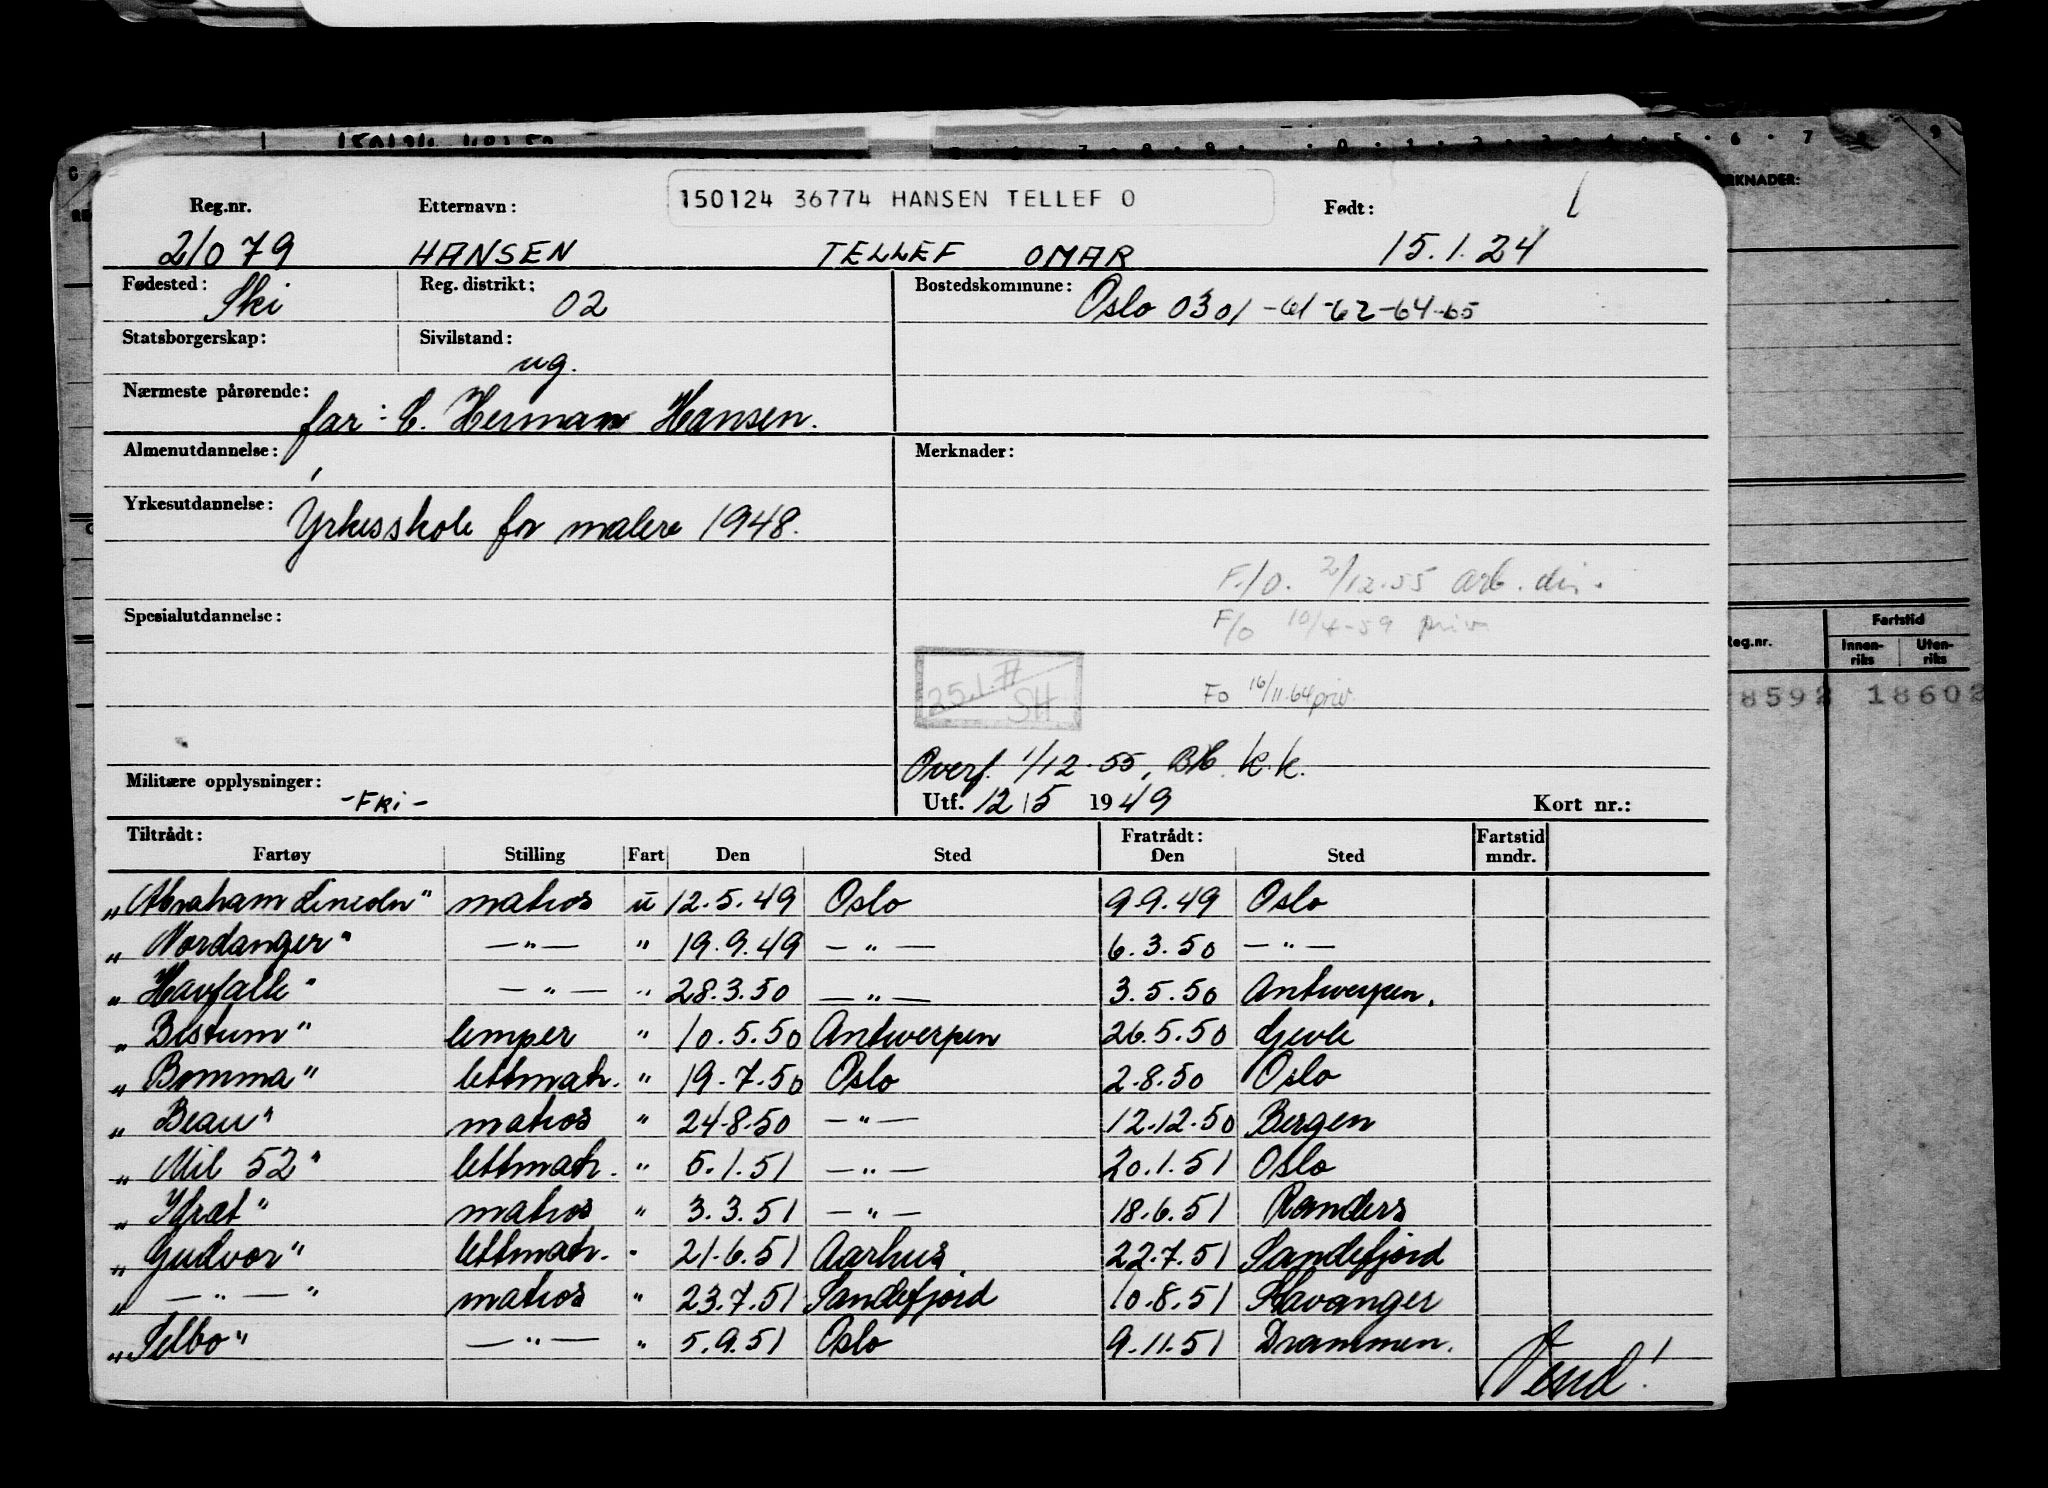 150124 36774 HANSEN TELLEF O
Reg.nr. Etternavn: Født:
21079 HANSEN TELLEF OMAR 15.1.24
Fødested: Ski Reg. distrikt: 02 Bostedskommune: Oslo 0301 -61-62-64-65
Statsborgerskap: Sivilstand: ug.
Nærmeste pårørende: far: C. Herman Hansen.
Almenutdannelse: Merknader:
Yrkesutdannelse: Yrkesskole for malere 1948.
F./O. 2/12.55 arb. dir.
Spesialutdannelse: F/O 10/4-59 priv
25.1. SH
Fo 16/11.64 priv.
Overf. 1/12-55, k.k.
Militære opplysninger: -FRI- Utf. 12/5 1949 Kort nr.:
Tiltrådt: Fratrådt: Fartstid
Fartøy Stilling Fart Den Sted Den Sted mndr.
"Abraham Lincoln" matros u 12.5.49 Oslo 9.9.49 Oslo
"Nordanger" —"— " 19.9.49 —"— 6.3.50 —"—
"Havfalk" —"— " 28.3.50 —"— 3.5.50 Antwerpen.
"Bestum" lemper " 10.5.50 Antwerpen 26.5.50 Gevle
"Bomma" lettmatr. " 19.7.50 Oslo 2.8.50 Oslo
"Beau" matros " 24.8.50 —"— 12.12.50 Bergen
"Mil 52" lettmatr. " 5.1.51 —"— 20.1.51 Oslo
"Idræt" matros " 3.3.51 —"— 18.6.51 Randers
"Gudvor" lettmatr. " 21.6.51 Aarhus 22.7.51 Sandefjord
"—"—" matros " 23.7.51 Sandefjord 10.8.51 Stavanger
"Selbo" —"— " 5.9.51 Oslo 9.11.51 Drammen.
Vend!
RKNADER:
Reg.nr. Fartstid
Innen-riks Uten-riks
8592 18602